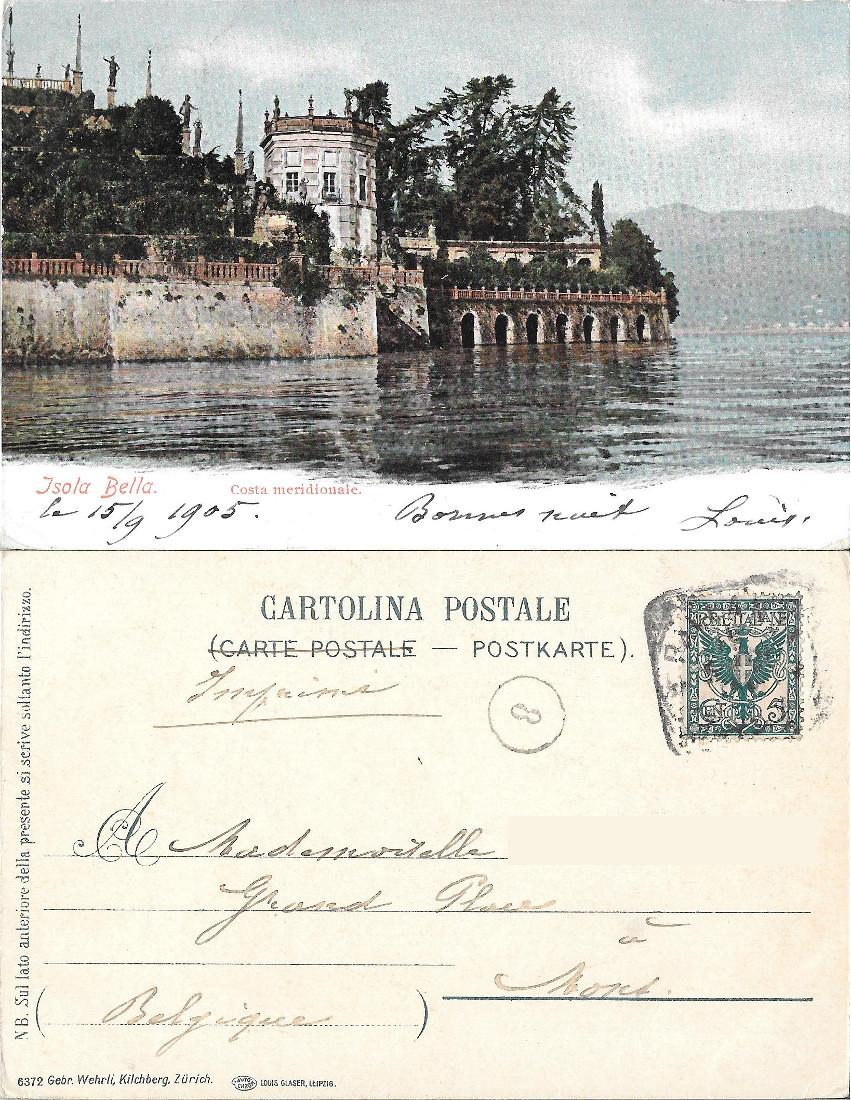 Isola Bella. Costa meridionale.
le 15/9 1905. Bonnes nuit Louis.
CARTOLINA POSTALE
(CARTE POSTALE — POSTKARTE).
Imprimé
8
POSTE ITALIANE
CENT. 5
A Mademoiselle
Grand Place
à
Mons.
(Belgique)
NB. Sul lato anteriore della presente si scrive soltanto l'indirizzo.
6372 Gebr. Wehrli, Kilchberg, Zürich. LOUIS GLASER, LEIPZIG.